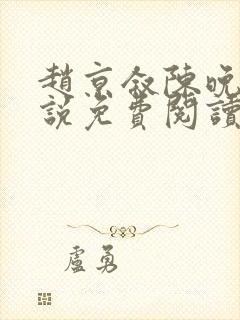 趙京叙陳晚
說免費閱讀
盧勇